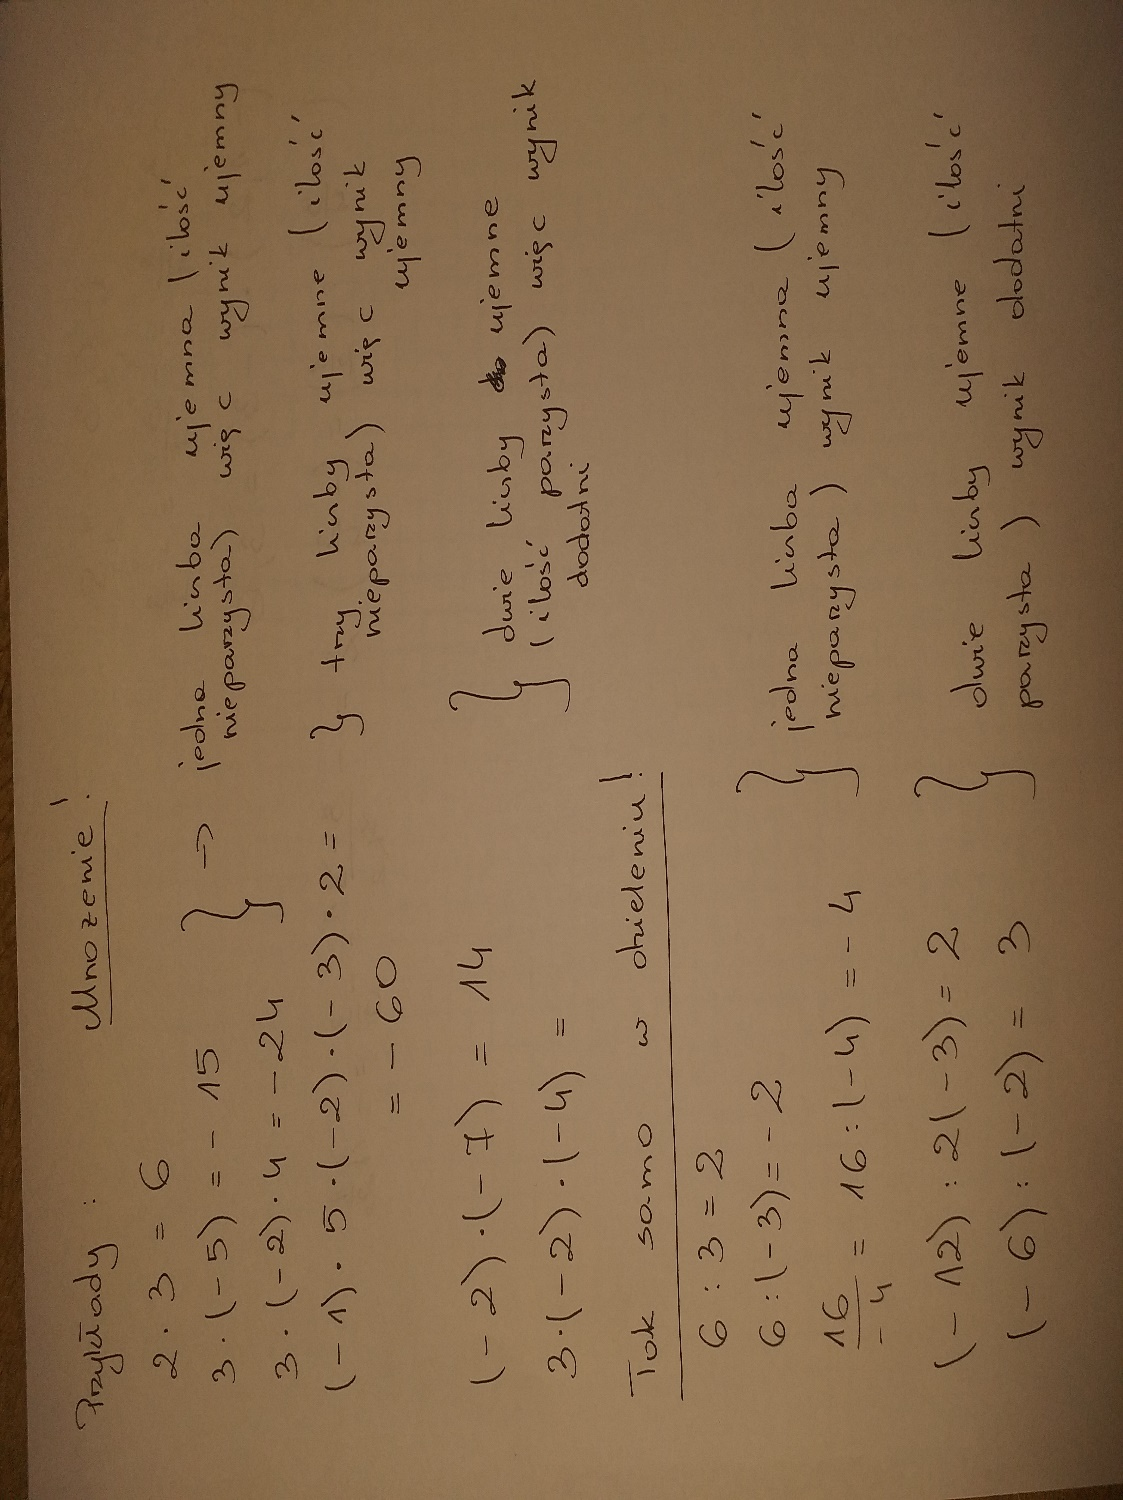 Przykłady : Mnożenie!
2 · 3 = 6
3 · (-5) = - 15 } → jedna liczba ujemna (ilość
3 · (-2) · 4 = -24 nieparzysta) więc wynik ujemny
(-1) · 5 · (-2) · (-3) · 2 = } trzy liczby ujemne (ilość
= - 60 nieparzysta) więc wynik
ujemny
(-2) · (-7) = 14 } dwie liczby ujemne
3 · (-2) · (-4) = (ilość parzysta) więc wynik
dodatni
Tak samo w dzieleniu!
6 : 3 = 2
6 : (-3) = - 2 } jedna liczba ujemna (ilość
16/-4 = 16 : (-4) = - 4 nieparzysta) wynik ujemny
(-12) : 2(-3) = 2 } dwie liczby ujemne (ilość
(-6) : (-2) = 3 parzysta) wynik dodatni